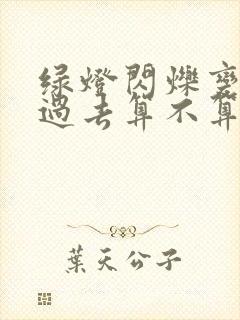 绿燈閃爍
過去算不算
葉天公子